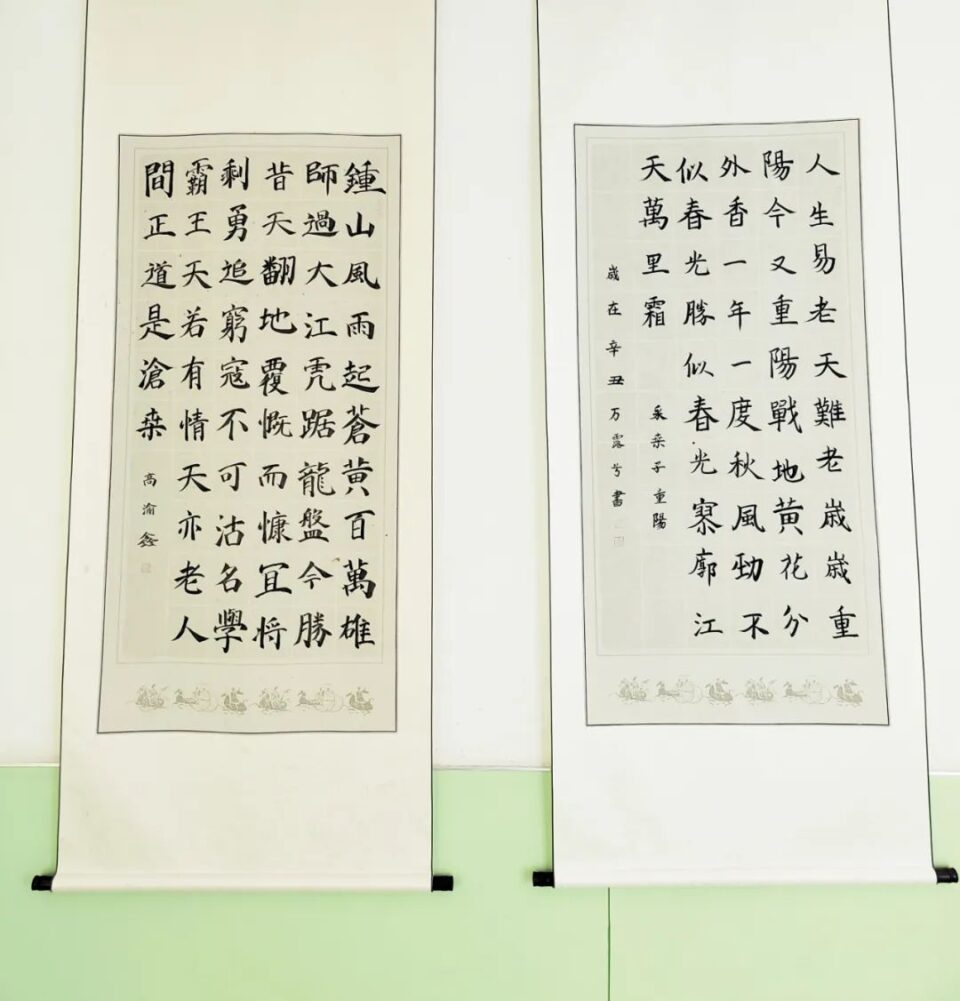 人生易老天難老歳歳重
陽今又重陽戰地黄花分
外香一年一度秋風勁不
似春光勝似春光寥廓江
天萬里霜
采桑子重陽
歳在辛丑万露兮書
鍾山風雨起蒼黄百萬雄
師過大江虎踞龍盤今勝
昔天翻地覆慨而慷宜将
剩勇追窮寇不可沽名學
霸王天若有情天亦老人
間正道是滄桑
高渝鑫